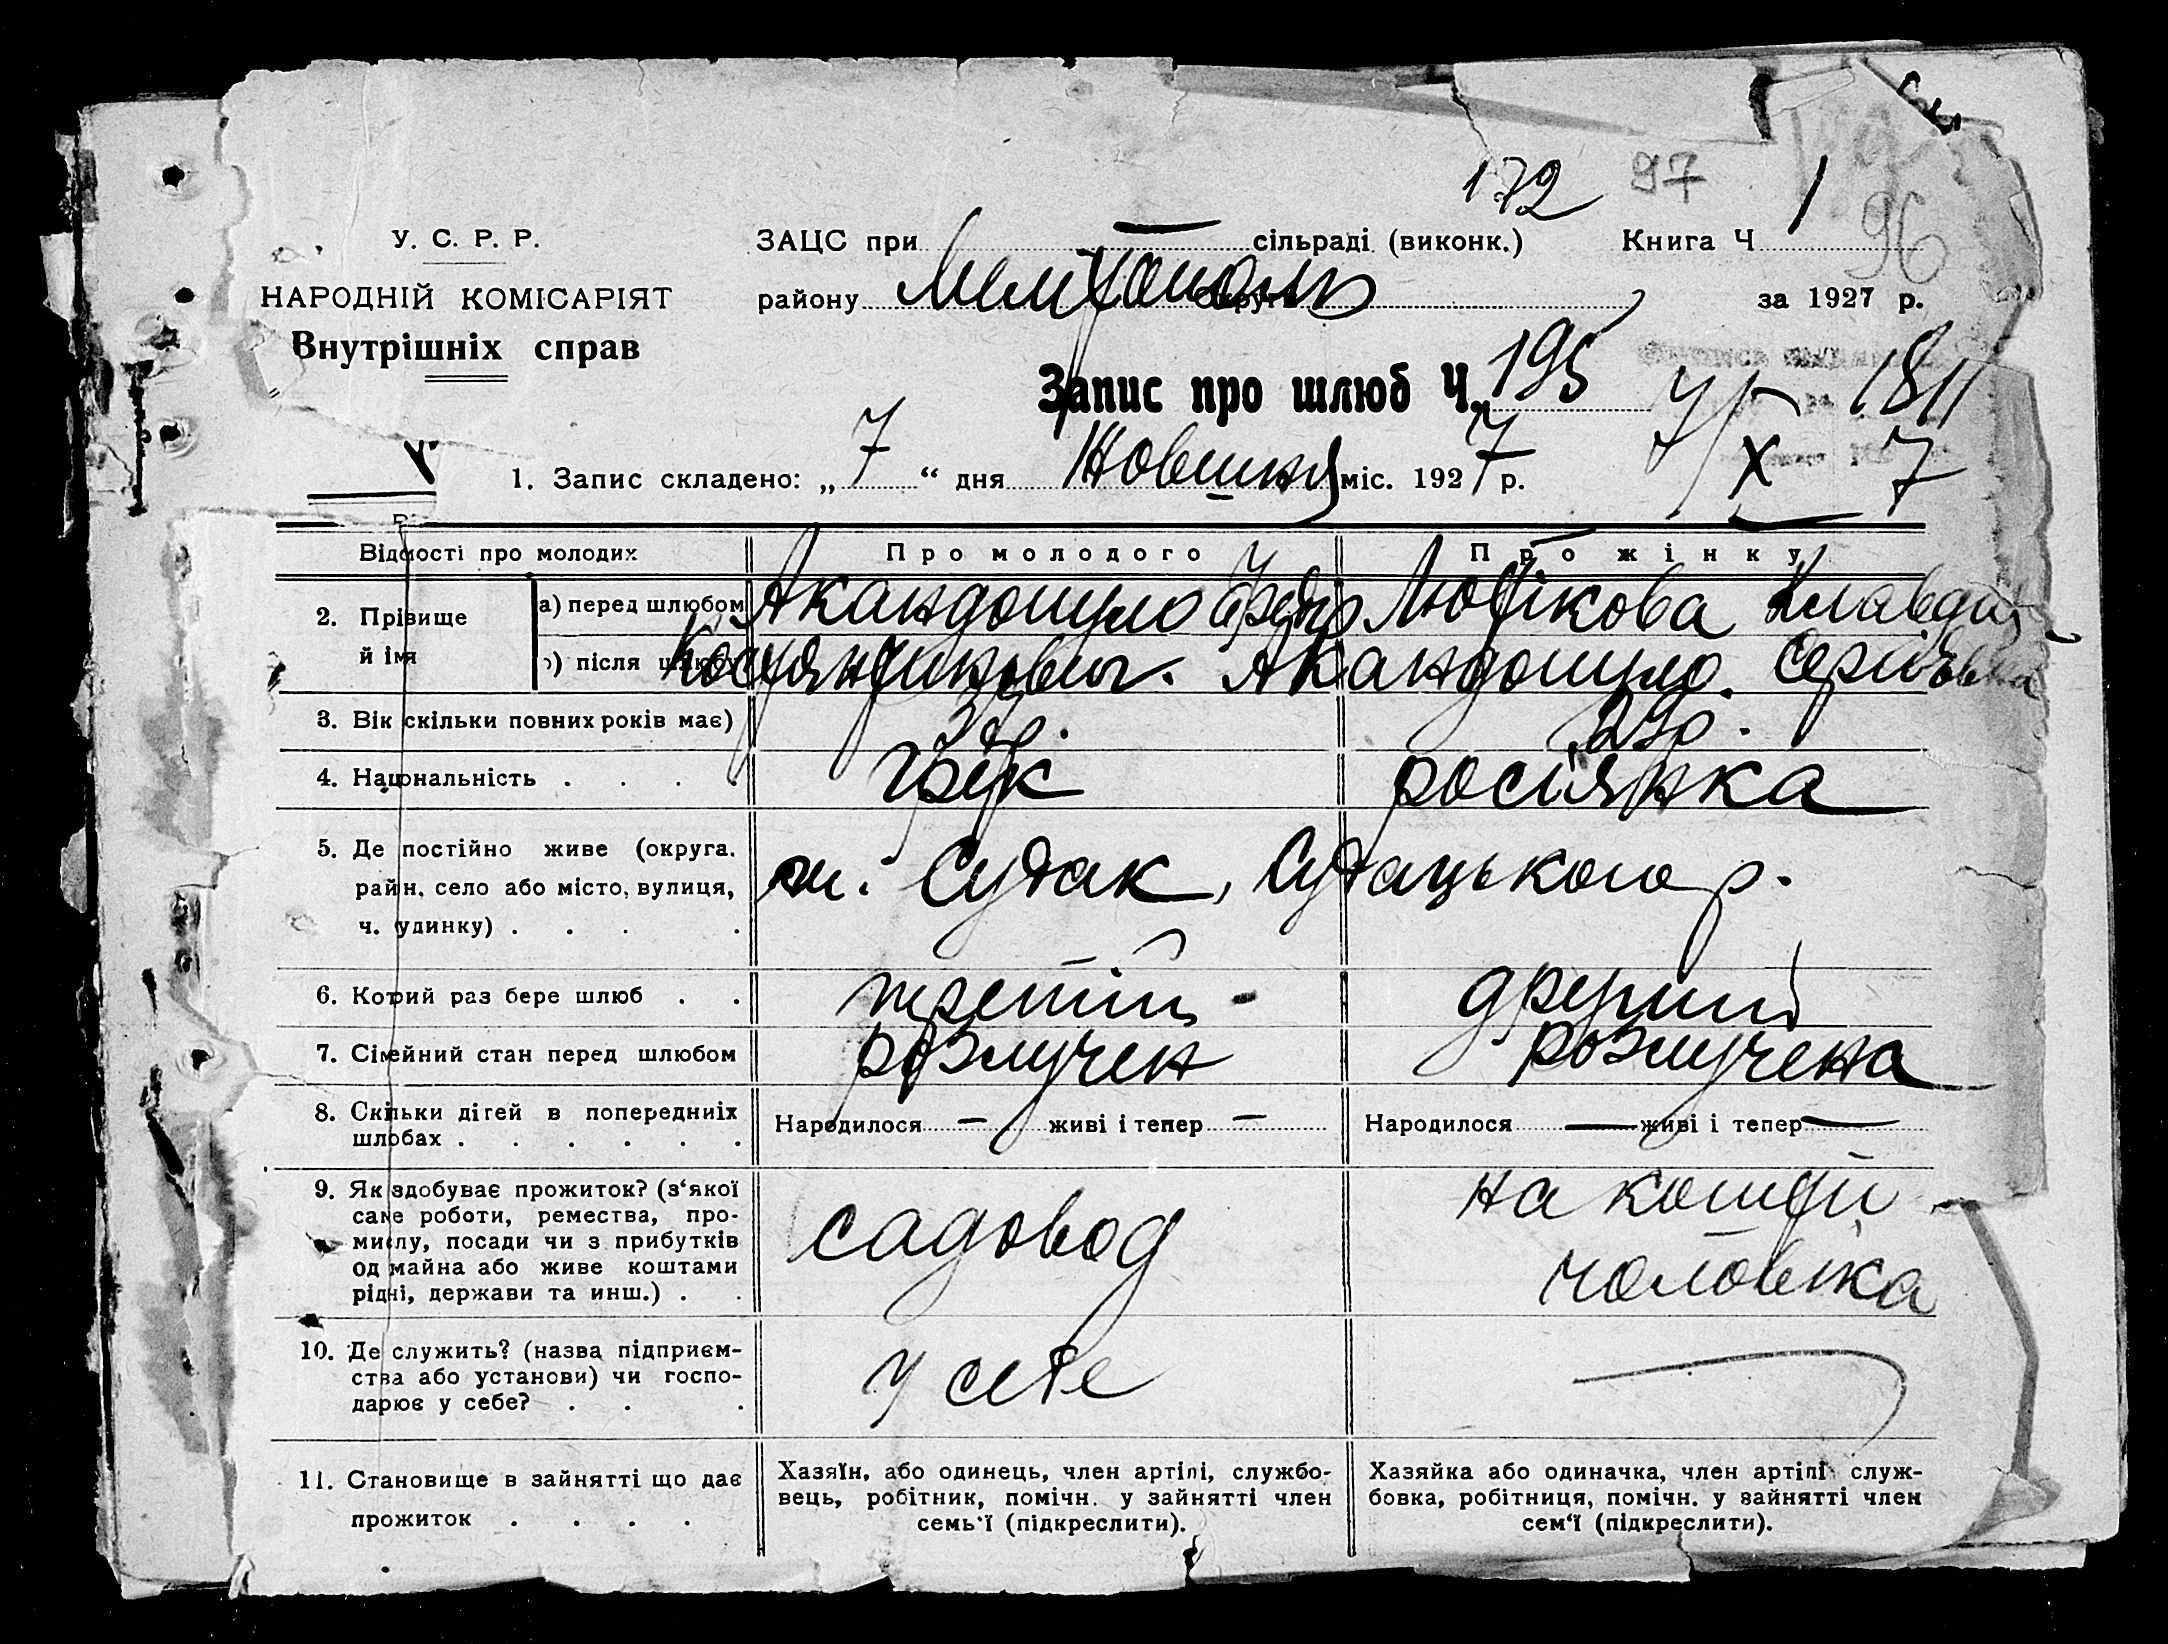 172 97
96
У. С. Р. Р.
ЗАЦС при — сільраді (виконк.) Книга Ч. 1
НАРОДНІЙ КОМІСАРІЯТ
району Мелітополь за 1927 р.
Внутрішніх справ
Запис про шлюб Ч. 195
1. Запис складено: „ 7 “ дня Жовтня міс. 1927 р.
Відомості про молодих Про молодого Про жінку
2. Прізвище й імя
а) перед шлюбом Клавдія
б) після шлюбу
3. Вік скільки повних років має)
4. Національність . . . . грек росіянка
5. Де постійно живе (округа, м. Судак, Судацького р.
район, село або місто, вулиця,
ч. будинку) . . . .
6. Котрий раз бере шлюб . . третій другий
7. Сімейний стан перед шлюбом розлучен розлучена
8. Скільки дітей в попередніх шлюбах . . . . . . Народилося — живі і тепер — Народилося — живі і тепер —
9. Як здобуває прожиток? (з‘якої садовод на кошти
саме роботи, ремества, про- чоловіка
мислу, посади чи з прибутків
од майна або живе коштами
рідні, держави та инш.) . .
10. Де служить? (назва підприєм- у себе
ства або установи) чи госпо-
дарює у себе? . . .
11. Становище в зайнятті що дає
прожиток . . . .
Хазяїн, або одинець, член артілі, службо-
вець, робітник, помічн. у зайнятті член
семь‘ї (підкреслити).
Хазяйка або одиначка, член артілі служ-
бовка, робітниця, помічн. у зайнятті член
сем‘ї (підкреслити).